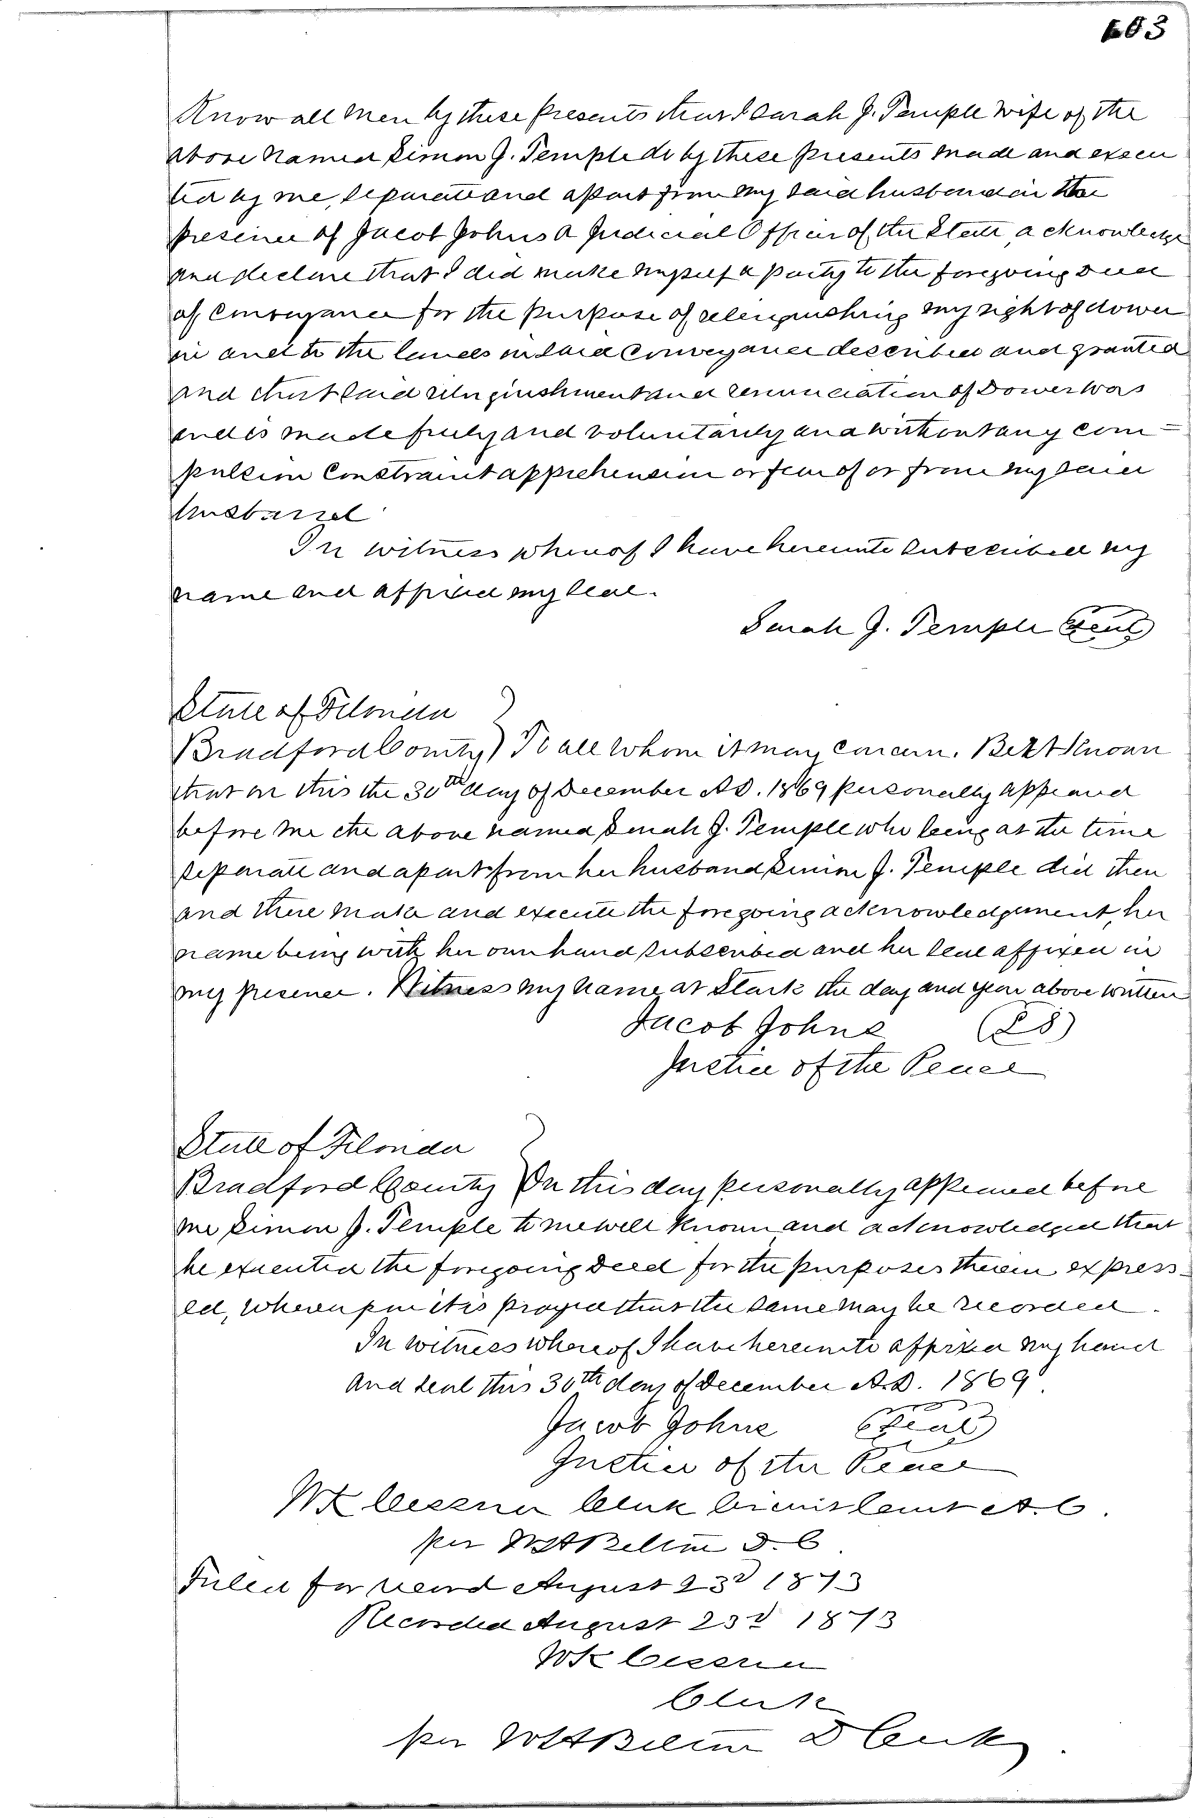 603
Know all men by these presents that I Sarah J. Temple wife of the
above named Simon J. Temple do by these presents made and execu
ted by me, separate and apart from my said husband in the
presence of Jacob Johns a Judicial Officer of the State, acknowledge
and declare that I did make myself a party to the foregoing Deed
of Conveyance for the purpose of relinquishing my right of dower
in and to the lands in said Conveyance described and granted
and that said relinquishment and renunciation of Dower was
and is made freely and voluntarily and without any com=
pulsion Constraint apprehension or fear of or from my said
husband
In witness whereof I have hereunto subscribed my
name and affixed my seal.
Sarah J. Temple (Seal)
State of Florida
Bradford County) To all whom it may concern. Be it Known
that on this the 30th day of December A.D. 1869 personally appeared
before me the above named Sarah J. Temple who being at the time
separate and apart from her husband Simon J. Temple did then
and there make and execute the foregoing acknowledgement, her
name being with her own hand subscribed and her seal affixed in
my presence. Witness my name at Stark the day and year above written
Jacob Johns (LS)
Justice of the Peace
State of Florida
Bradford County } On this day personally appeared before
me Simon J. Temple to me well Known and acknowledged that
he executed the foregoing Deed for the purposes therein express-
ed, whereupon it is prayed that the same may be recorded.
In witness whereof I have hereunto affixed my hand
and seal this 30th day of December A.D. 1869.
Jacob Johns (Seal)
Justice of the Peace
WK Cessna Clerk Circuit Court A.C.
per WH Belton D.C.
Filed for record August 23d 1873
Recorded August 23d 1873
WK Cessna
Clerk
per WH Belton D Clerk.